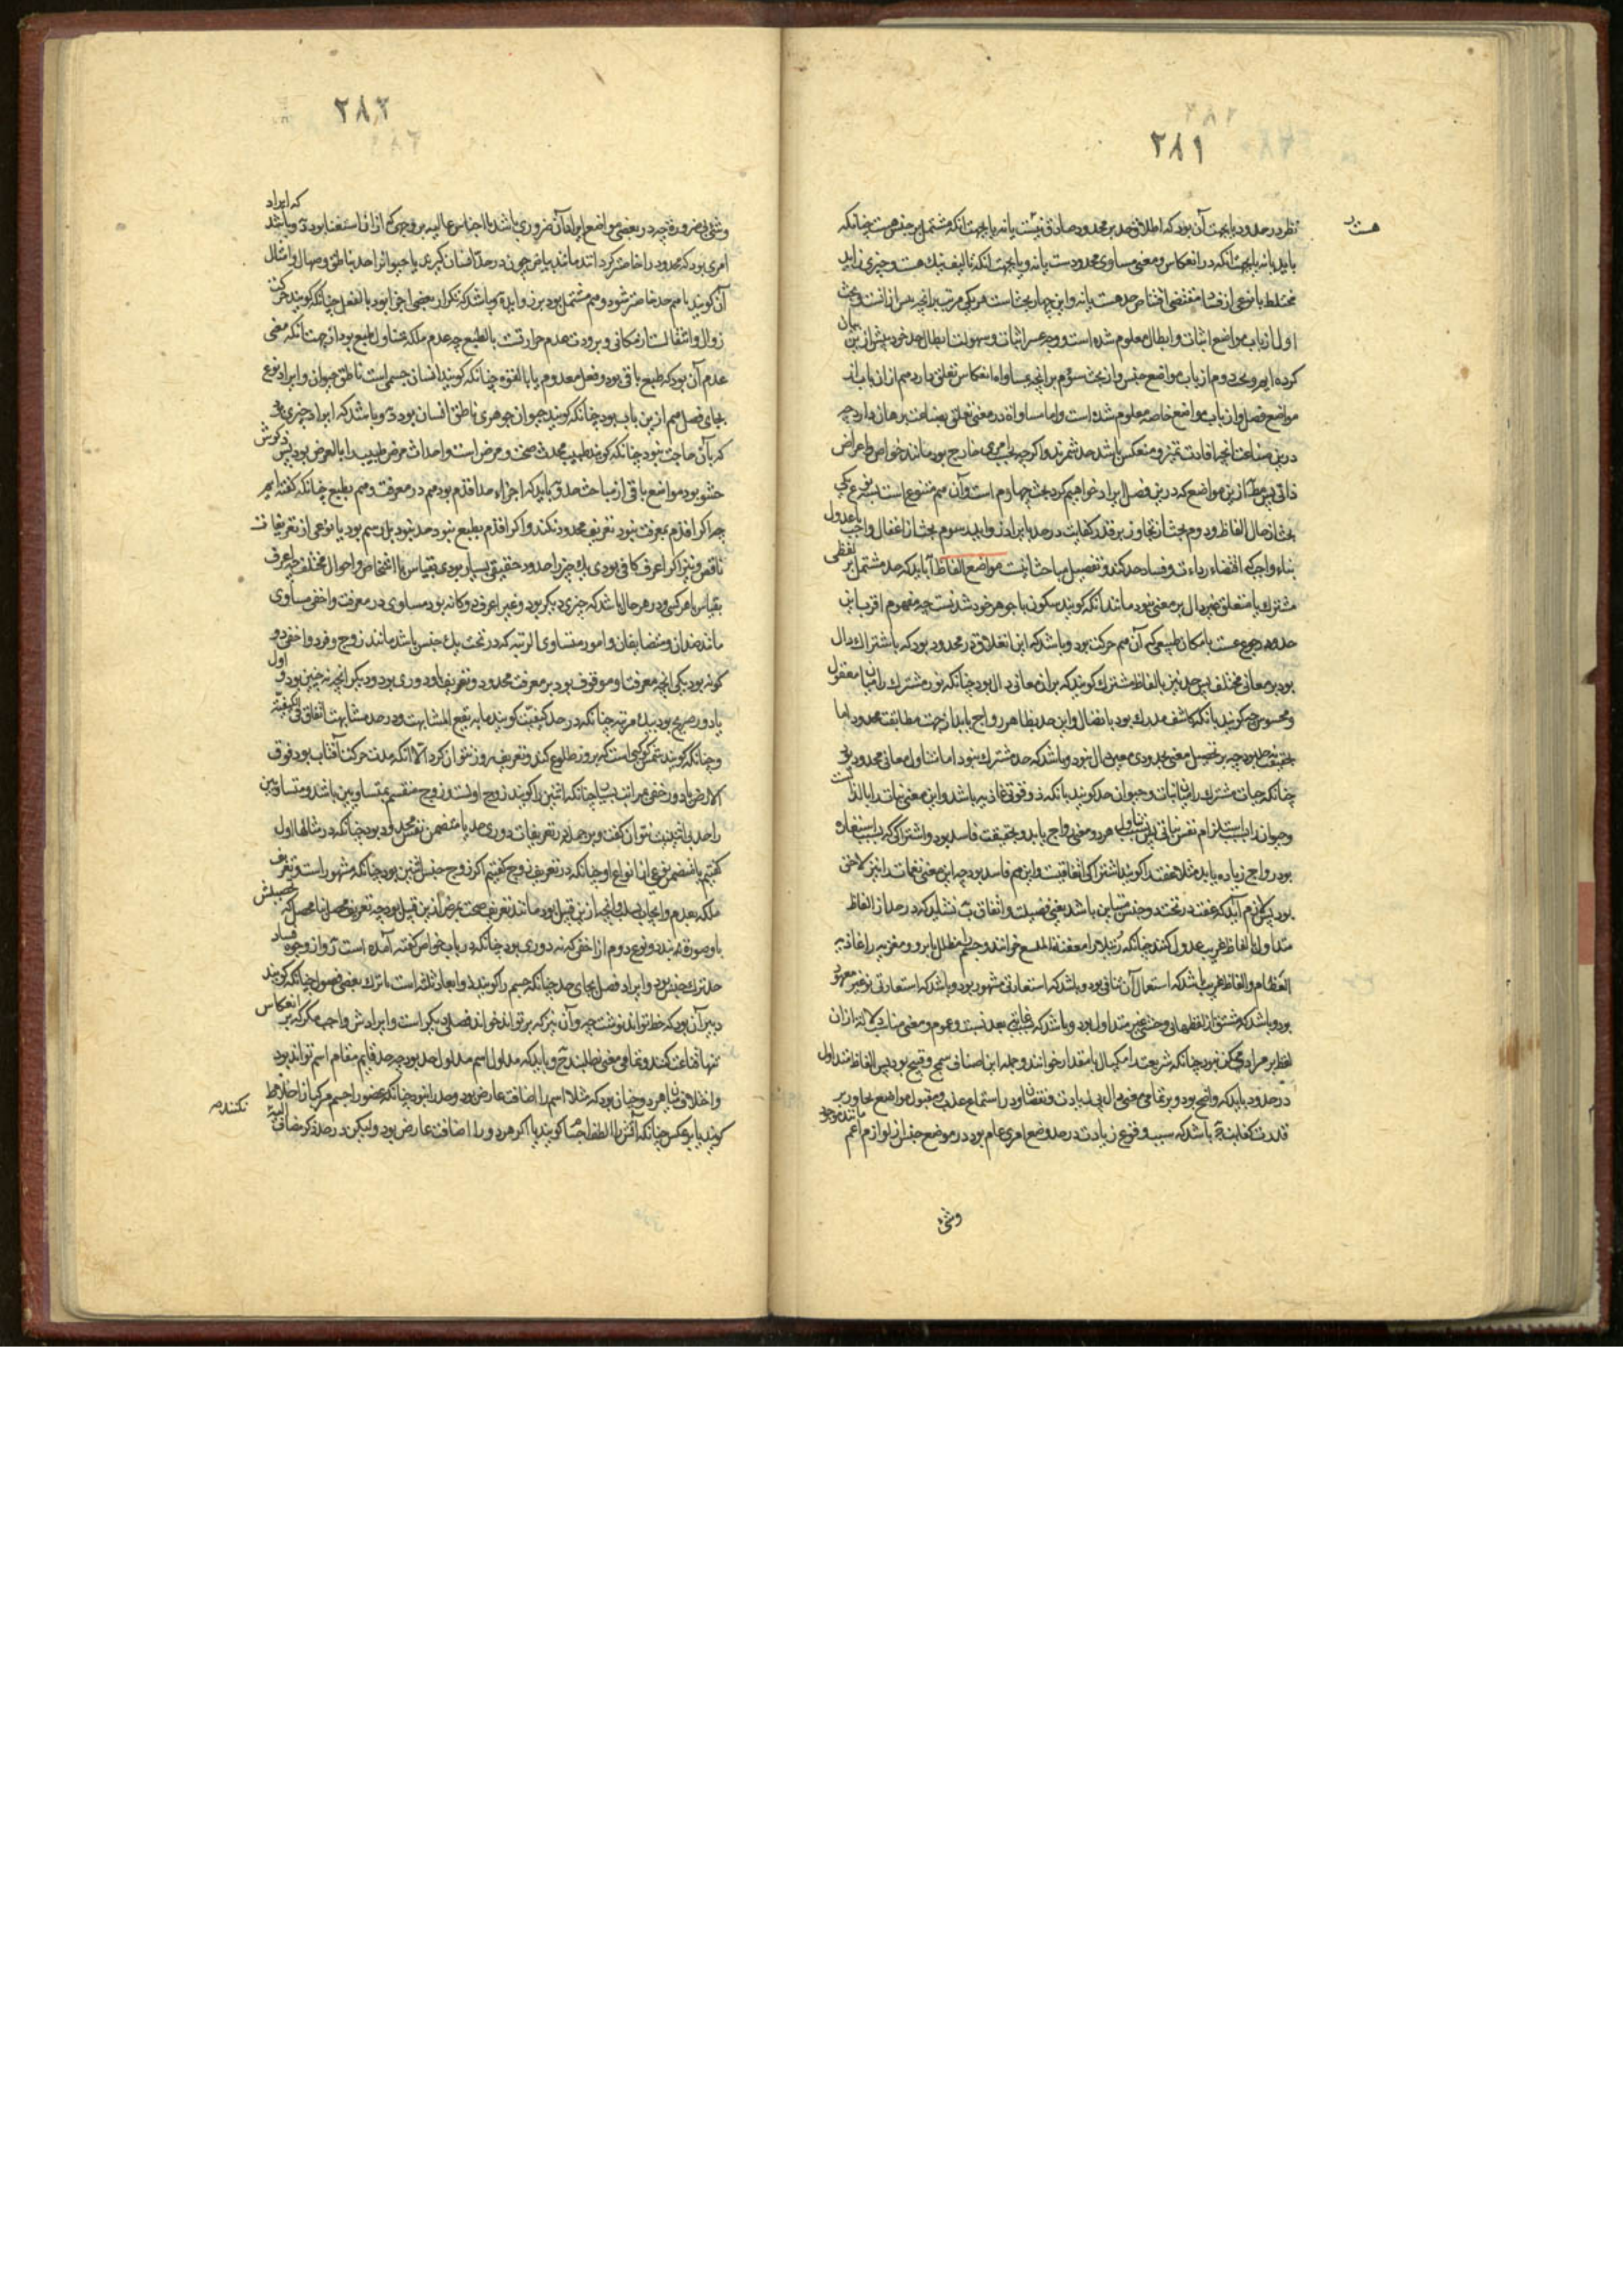 ۲۸۱
نظر در حدود یا بجهت آن بود که اطلاق حد بر محدود صادق نیست یا نه یا بجهت آنکه مشتمل بر جنس هست چنانکه
هست
باید یا نه یا بجهت آنکه در انعکاس و معنی مساوی محدود است یا نه و یا بجهت آنکه تالیف نیک هست و چیزی زاید
مختلط یا نوعی از فساد مقتضی انتقاص حد هست یا نه و این چهار بحث است هر یکی مرتب بر آنچه پس از آنست و بحث
اول از باب مواضع اثبات و ابطال معلوم شده است و وجه عسر اثبات و سهولت ابطال حد خود پیش ازین بیان
کرده‌ایم و بحث دوم از باب مواضع جنس و از بحث سوم بر آنچه بمساواة و انعکاس تعلق دارد هم از آن باب از
مواضع فصل و از باب مواضع خاصه معلوم شده است و اما مساواة در معنی تعلق بصناعت برهان دارد چه
درین صناعت آنچه افادت تمیز و منعکس باشد حد شمرند و اگر چه بامری خارج بود مانند خواص و اعراض
ذاتی پس مطلب ازین مواضع که درین فصل ایراد خواهیم کرد بحث چهارم است و آن هم متنوع است بسه نوع یکی
بحث از حال الفاظ و دوم بحث از تجاوز بر قدر کفایت در حد بایراد زواید سوم بحث از اغفال واجب یا عدول
بناء واجب که اقتضاء رداءت و فساد حد کند و تفصیل مباحث اینست مواضع الفاظ آ باید که حد مشتمل بر لفظی
مشترک یا متعلق غیر دال بر معنی نبود مانند آنکه گویند سکون با جوهر خود شدنست چه مفهوم اقرب این
حدود رجوعست بامکان طبیعی که آن هم حرکت بود و باشد که این انغلاق در محدود بود که باشتراک دال
بود بر معانی مختلف پس حد نیز بالفاظ مشترک گویند که بر آن معانی دال بود چنانکه نور مشترک را میان معقول
و محسوس حد گویند بآنکه کاشف مدرک بود باتصال و این حد بظاهر رواج یابد از جهت مطابقت محدود اما
بحقیقت حد نبود چه بر تحصیل معنی محدودی معین دال نبود و باشد که حد مشترک نبود اما متناول معانی محدود بود
چنانکه حیات مشترک را میان نبات و حیوان حد گویند بآنکه ذو قوتی غاذیه باشد و این معنی نبات را بالذات
و حیوان را باستلزام نفس نباتی پس تناول هر دو معنی رواج یابد و بحقیقت فاسد بود و اشتراکی که بسبب استعاره
بود رواج زیاده یابد مثلا عفت را گویند اشتراکی اتفاقیست و این هم فاسد بود چه این معنی نغمات را نیز
بود پس لازم آید که عفت در تحت دو جنس متباین باشد یعنی فضیلت و اتفاق ب نشاید که در حد از الفاظ
متداول بالفاظ غریب عدول کنند چنانکه
العظام و الفاظ غریب باشد که استعمال آن اتفاقی بود و باشد که استعارتی مشهور بود و باشد که استعارتی نو غیر معهود
بود و باشد که مشتق از لفظهای وحشی غیر متداول بود و باشد که بغایت بعد نسبت و عموم و معنی مناسب دلالت از آن
لفظ بر مراد ممکن نبود چنانکه شریعت را مکیال یا مقدار خوانند و جمله این اصناف سمج و قبیح بود پس الفاظ متداول
در حدود باید که واضح بود و بر تمامی معنی دال بی زیادت و نقصان و در استماع عذب و مقبول مواضع تجاوز بر
قدر کفایت آ باشد که سبب وقوع زیادت در حد وضع امری عام بود در موضع جنس از لوازم اعم مانند موجود
وشئ
۲۸۲
وشئ بی ضرورة چه در بعضی مواضع ایراد آن ضروری باشد یا اجناس عالیه بر وجهی که از آن استغنا بود ب و باشد که ایراد
امری بود که محدود را خاص‌تر گرداند مانند بیاض چون در حد انسان گیرند یا حیوان را حد بناطق و صهال و امثال
آن گویند یا هم حد خاص‌تر شود و هم مشتمل بود بر زواید ج و باشد که تکرار بعضی اجزا بود بالفعل چنانکه گویند حرکت
زوال و انتقالست از مکانی و برودت عدم حرارتست بالطبع چه عدم ملکه متناول طبع بود از جهت آنکه معنی
عدم آن بود که طبع باقی بود و فعل معدوم یا بالقوه چنانکه گویند انسان جسمی است ناطق حیوان و ایراد نوع
بجای فصل هم ازین باب بود چنانکه گویند حیوان جوهری ناطق انسان بود د و باشد که ایراد چیزی بود
که بآن حاجت نبود چنانکه گویند طبیب محدث صحت و مرض است و احداث مرض طبیب را بالعرض بود پس ذکرش
حشو بود مواضع باقی از مباحث حد آ باید که اجزاء حد اقدم بود هم در معرفت و هم بطبع چنانکه گفته‌ایم
چه اگر اقدم بمعرفت نبود تعریف محدود نکند و اگر اقدم بطبع نبود حد نبود بل رسم بود یا نوعی از تعریفات
ناقص و نیز اگر اعرف کافی بودی یک چیز را حدود حقیقی بسیار بودی بقیاس با اشخاص و احوال مختلف چه اعرف
بقیاس با هر کسی و در هر حال باشد که چیزی دیگر بود و غیر اعرف دو گانه بود مساوی در معرفت و اخفی مساوی
مانند ضدان و متضایفان و امور متساوی الرتبه که در تحت یک جنس باشد مانند زوج و فرد و اخفی دو
گونه بود یکی آنچه معرفت او موقوف بود بر معرفت محدود و تعریف او دوری بود و دیگر آنچه نه چنین بود و اول
یا دور صریح بود بیک مرتبه چنانکه در حد کیفیت گویند ما به یقع المشابهة و در حد مشابهت اتفاق فی الکیفیة
و چنانکه گویند شمس کوکبی است که بروز طلوع کند و تعریف روز نتوان کرد الا آنکه مدت حرکت آفتاب بود فوق
الارض یا دور خفی بمراتب بسیار چنانکه اثنین را گویند زوج اولست و زوج منقسم بمتساویین باشد و متساویین
را حد بی اثنینیت نتوان گفت و بر جمله در تعریفات دوری حد یا متضمن نفس محدود بود چنانکه در مثالها اول
گفتیم یا متضمن نوعی از انواع او چنانکه در تعریف زوج گفتیم اگر زوج جنس اثنین بود چنانکه مشهور است و تعریف
ملکه بعدم و ایجاب بسلب و آنچه ازین قبیل بود مانند تعریف صحت بمرض ازین قبیل بود چه تعریف محصل بنامحصل که تحصیلش
باو صورت بندد و نوع دوم از اخفی که نه دوری بود چنانکه در باب خواص گفته آمده است و از وجوه فساد
حد ترک جنس بود و ایراد فصل بجای حد چنانکه جسم را گویند ذو ابعاد ثلثه است یا ترک بعضی فصول چنانکه گویند
دبیر آن بود که خط تواند نوشت چه و آن نیز که بر تواند خواند فصلی دیگر است و ایرادش واجب مگر که بر انعکاس
تنها قناعت کنند و تمامی معنی نطلبند ج و باید که مدلول اسم مدلول حد بود چه حد قایم مقام اسم تواند بود
و اختلاف میان هر دو چنان بود که مثلا اسم را اضافت عارض بود و حد را نبود چنانکه عضو را جسم مرکب از اخلاط
گویند یا بر عکس چنانکه آتش را الطف اجسام گویند یا اگر هر دو را اضافت عارض بود و لیکن در حد ذکر مضاف الیه
نکنند